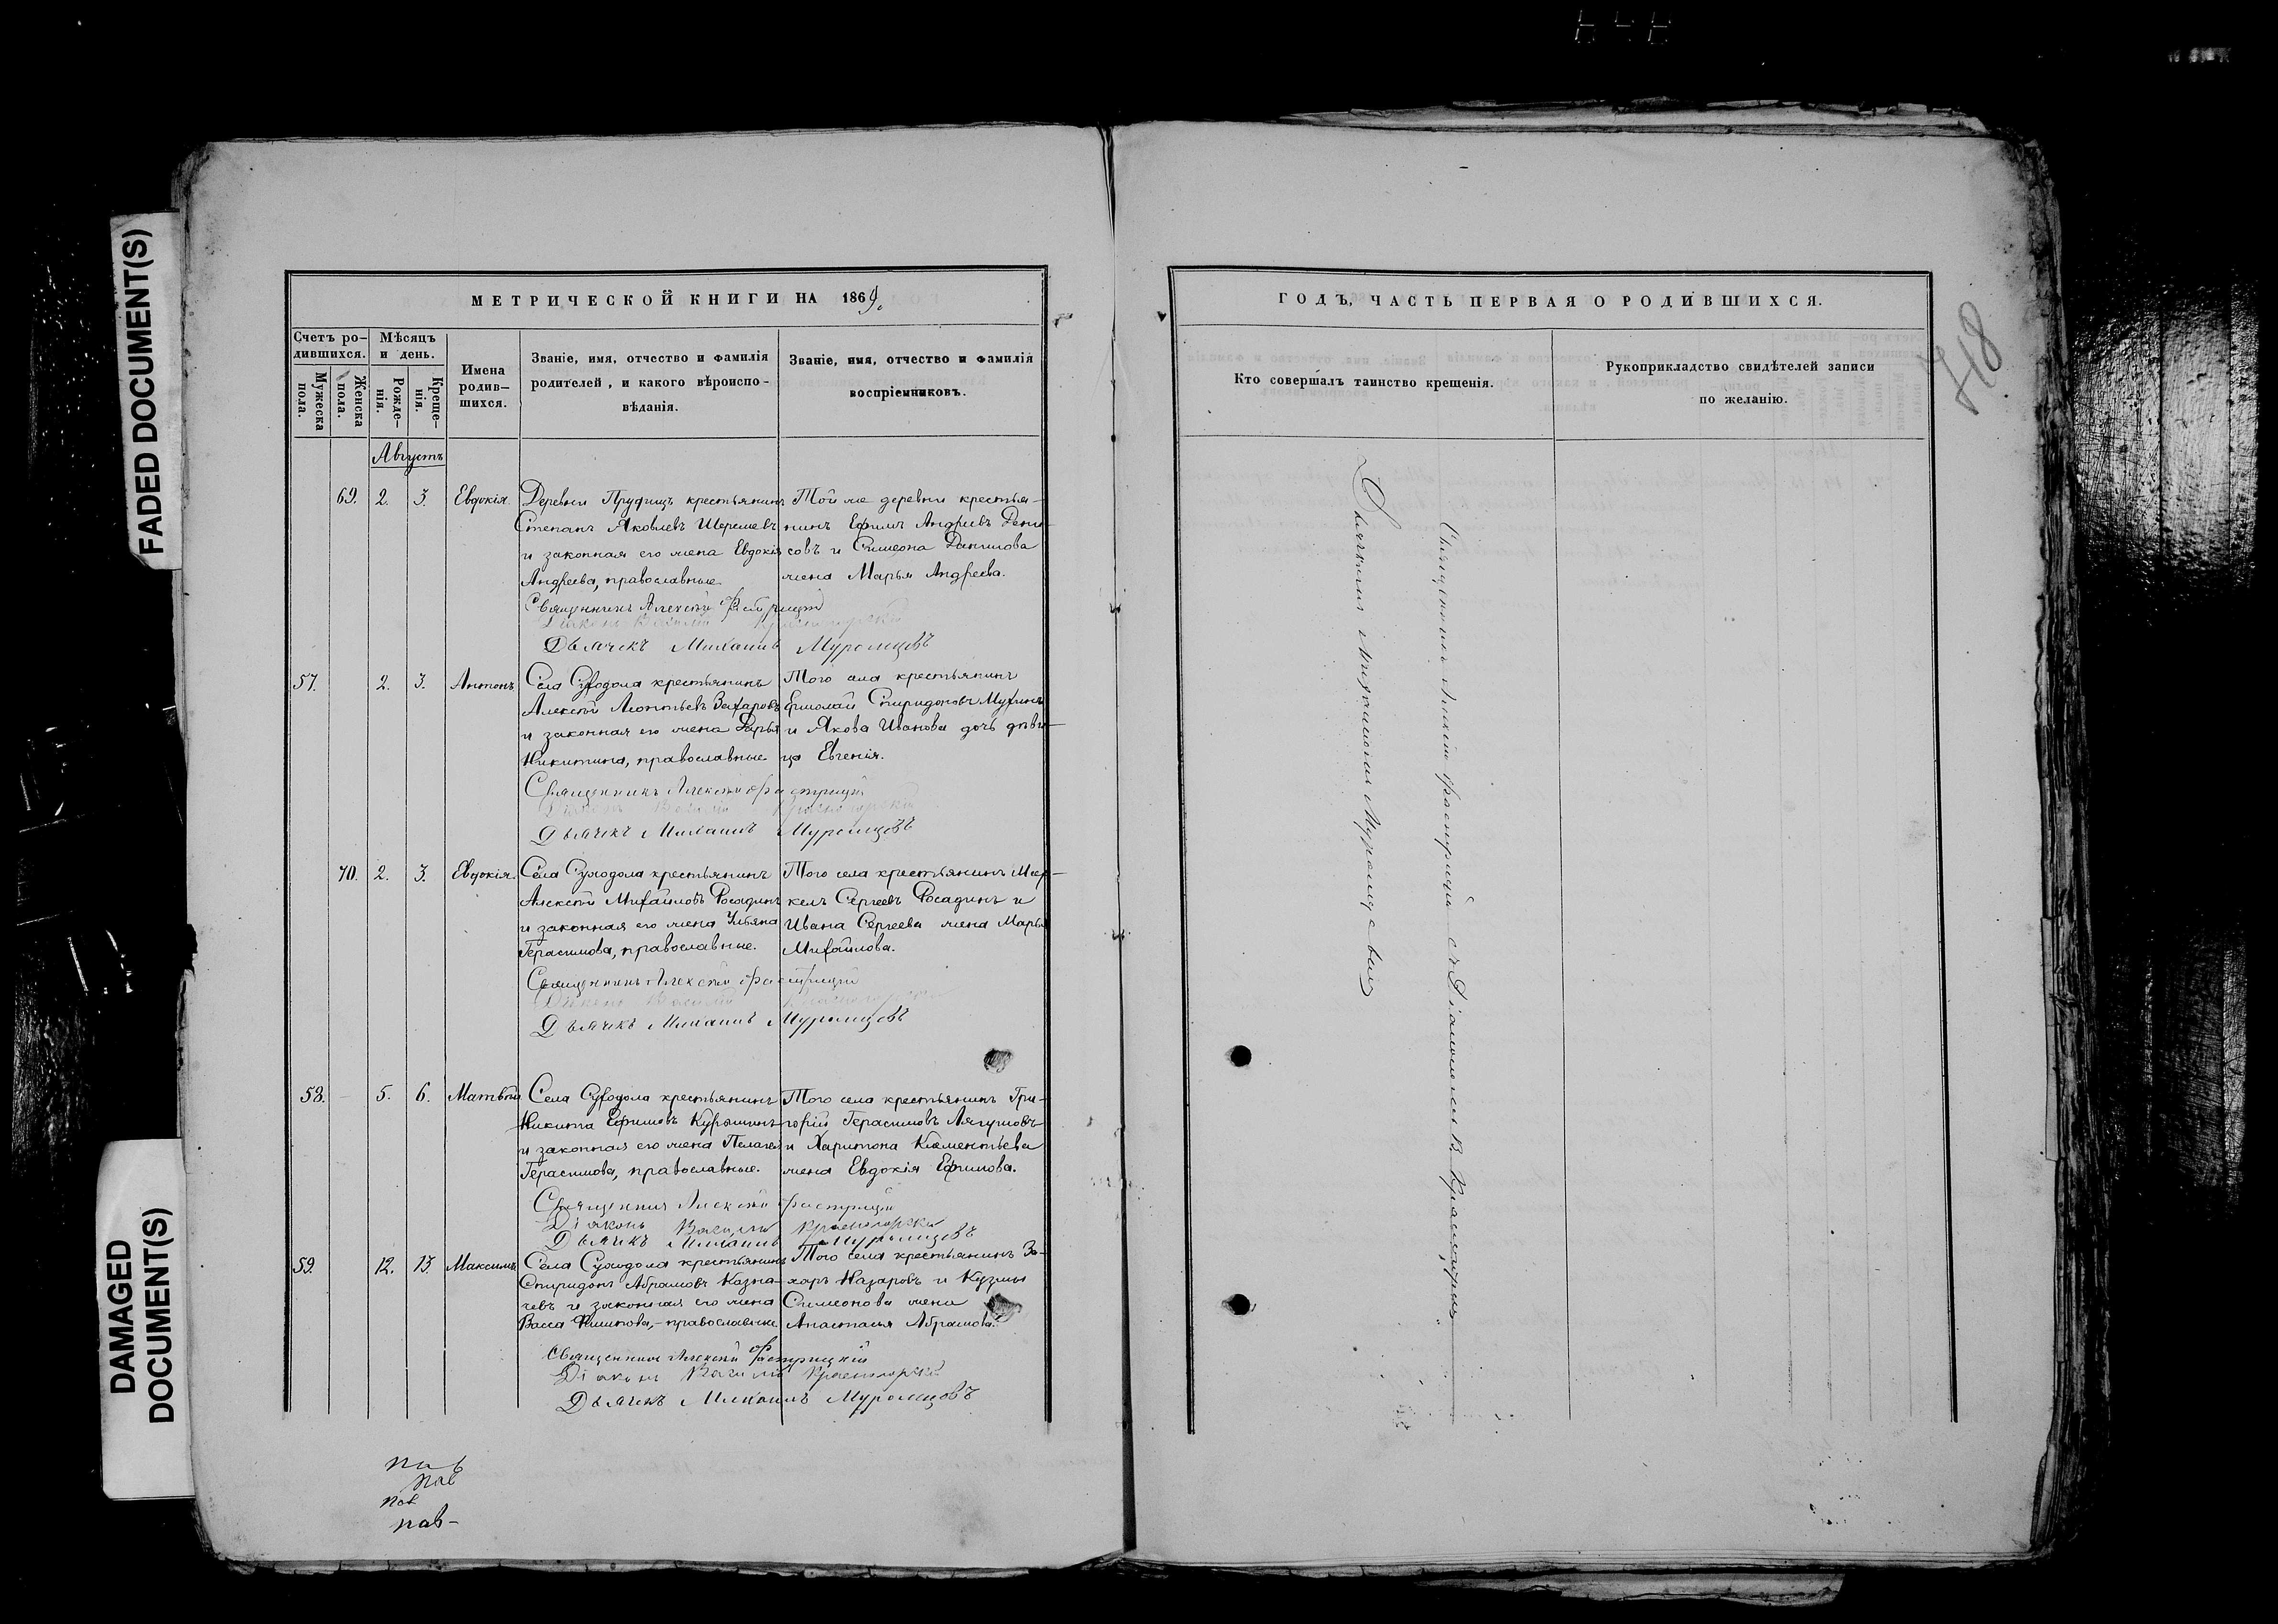 FADED DOCUMENT(S)
DAMAGED
DOCUMENT(S)
МЕТРИЧЕСКОЙ КНИГИ НА 1869.
Счетъ ро-
дившихся.
Мужеска
пола.
Женска
пола.
Мѣсяцъ
и день.
Рожде-
нія.
Креще-
нія.
Имена
родив-
шихся.
Званіе, имя, отчество и фамилія
родителей, и какого вѣроиспо-
вѣданія.
Званіе, имя, отчество и фамилія
воспріемниковъ.
Августъ
69. 2. 3. Евдокія.
Деревни Прудищъ крестьянинъ
Степанъ Яковлевъ
и законная его жена Евдокія
Андреева, православные.
Той же деревни крестья-
нинъ Ефимъ Андреевъ Дени-
совъ и Симеона Данилова
жена Марья Андреева.
Священникъ Алексѣй
Діаконъ Василій
Дьячекъ Михаилъ Муромцовъ
57. 2. 3. Антонъ
Села Суходола крестьянинъ
Алексѣй Леонтьевъ Захаровъ
и законная его жена Дарья
Никитина, православные.
Того села крестьянинъ
Ермолай Спиридоновъ Мухинъ
и Якова Иванова дочь дѣви-
ца Евгенія.
Священникъ Алексѣй
Діаконъ Василій
Дьячекъ Михаилъ Муромцовъ
70. 2. 3. Евдокія.
Села Суходола крестьянинъ
Алексѣй Михайловъ Росадинъ
и законная его жена Ульяна
Герасимова, православные.
Того села крестьянинъ Мер-
келъ Сергеевъ Росадинъ и
Ивана Сергеева жена Марья
Михайлова.
Священникъ Алексѣй
Діаконъ Василій
Дьячекъ Михаилъ Муромцовъ
58. 5. 6. Матвѣй
Села Суходола крестьянинъ
Никита Ефимовъ Курышинъ
и законная его жена Пелагея
Герасимова, православные.
Того села крестьянинъ Гри-
горій Герасимовъ Лягушовъ
и Харитона Клементьева
жена Евдокія Ефимова.
Священникъ Алексѣй
Діаконъ Василій
Дьячекъ Михаилъ Муромцовъ
59. 12. 13. Максимъ
Села Суходола крестьянинъ
Спиридонъ Абрамовъ Казна-
чевъ и законная его жена
Васса Филипова, православные
Того села крестьянинъ За-
харъ Назаровъ и Кузмы
Симеонова жена
Анастасья Абрамова.
Священникъ Алексѣй
Діаконъ Василій
Дьячекъ Михаилъ Муромцовъ
пав
пав
пав
пав-
ГОДЪ, ЧАСТЬ ПЕРВАЯ О РОДИВШИХСЯ.
Кто совершалъ таинство крещенія.
Рукоприкладство свидѣтелей записи
по желанію.
Священникъ Алексѣй съ Діакономъ В.
Дьячкомъ Михаиломъ Муромцевымъ